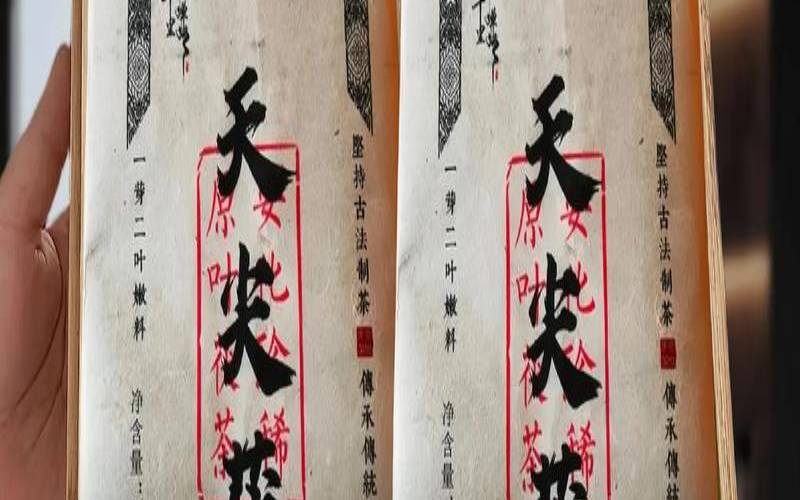 堅持古法制茶 傳承傳統
天尖茯
安化珍稀
原叶茯茶
一芽二叶嫩料 净含量:
堅持古法制茶 傳承傳統
天尖茯
安化珍稀
原叶茯茶
一芽二叶嫩料 净含量: